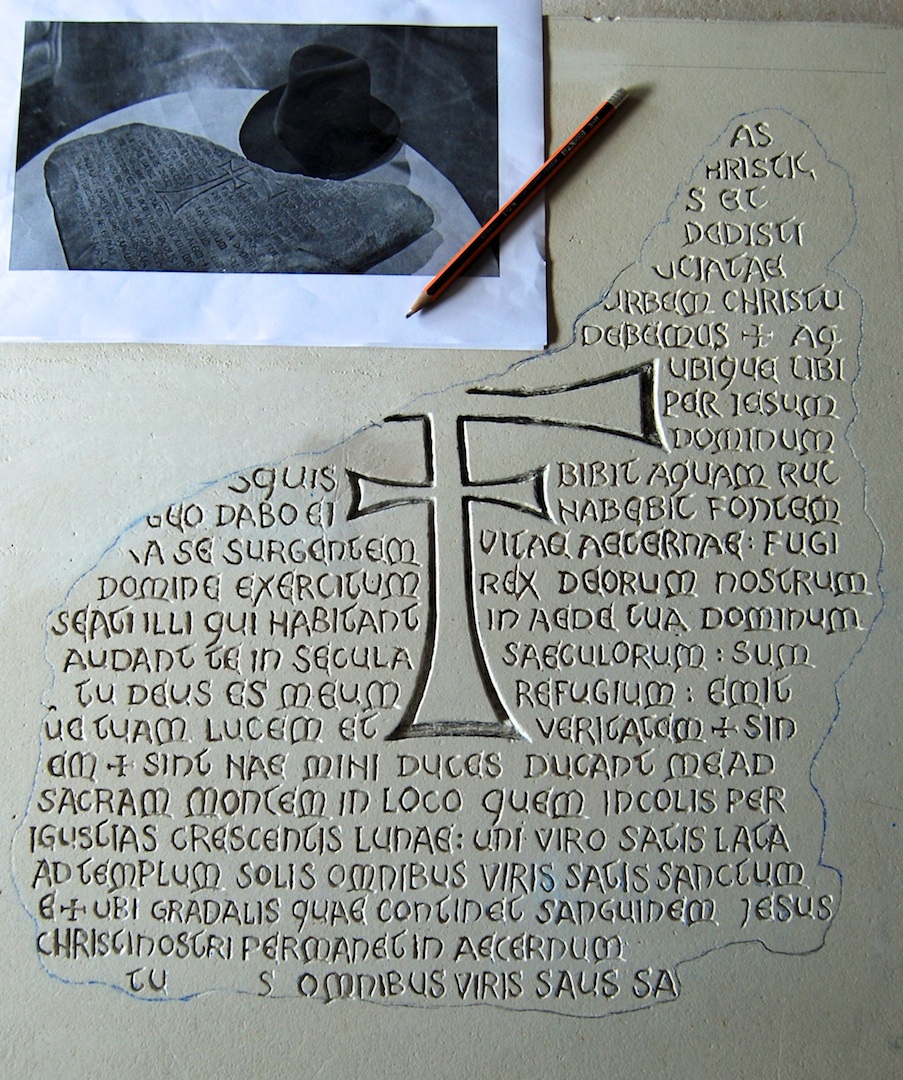 AS
HRISTIC
S ET
DEDISTI
UCIATAE
URBEM CHRISTU
DEBEMUS + AQ
UBIQUE UBI
PER IESUM
DOMINUM
SQUIS BIBIT AQUAM RUC
GEO DABO EI HABEBIT FONTEM
A SE SURGENTEM VITAE AETERNAE: FUGI
DOMINE EXERCITUM REX DEORUM NOSTRUM
SEATI ILLI QUI HABITANT IN AEDE TUA DOMINUM
AUDANT TE IN SECULA SAECULORUM : SUM
TU DEUS ES MEUM REFUGIUM : EMIT
UE TUAM LUCEM ET VERITATEM + SIN
EM + SINT NAE MINI DUCES DUCANT MEAD
SACRAM MONTEM IN LOCO QUEM INCOLIS PER
IGUSTIAS CRESCENTIS LUNAE: UNI VIRO SATIS LATA
AD TEMPLUM SOLIS OMNIBUS VIRIS SATIS SANCTUM
E + UBI GRADALIS QUAE CONTINET SANGUINEM JESUS
CHRISTI NOSTRI PERMANET IN AECERNUM
TU S OMNIBUS VIRIS SAUS SA